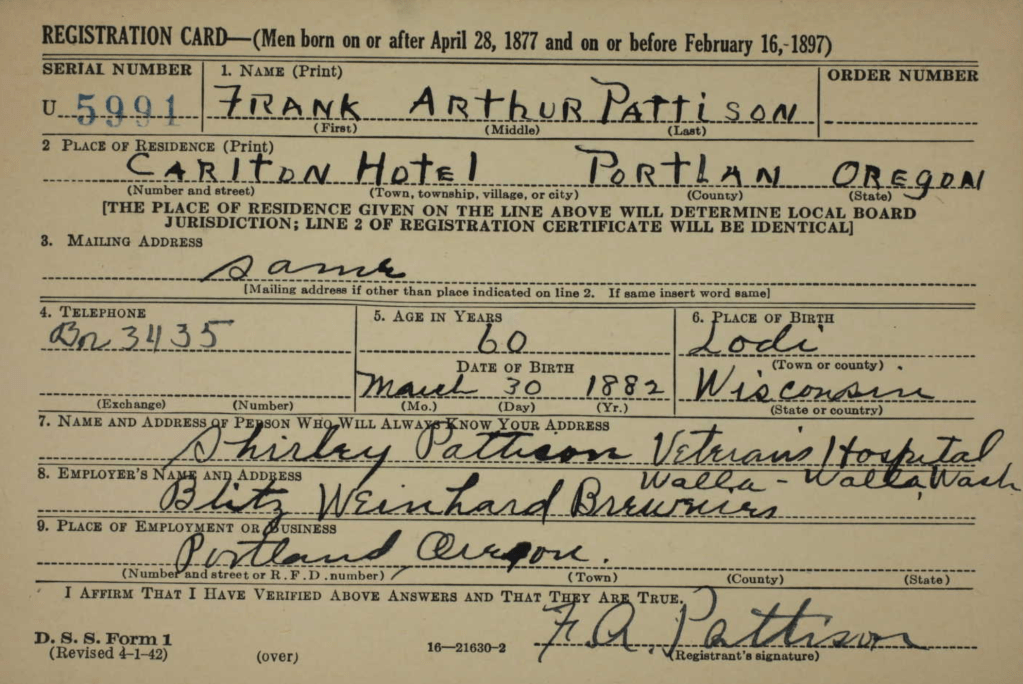 REGISTRATION CARD—(Men born on or after April 28, 1877 and on or before February 16, 1897)
SERIAL NUMBER 1. NAME (Print) ORDER NUMBER
U 5991 FRANK ARThUR PATTISON
(First) (Middle) (Last)
2 PLACE OF RESIDENCE (Print)
CARLTON HOTEl PORTLAN OREGON
(Number and street) (Town, township, village, or city) (County) (State)
[THE PLACE OF RESIDENCE GIVEN ON THE LINE ABOVE WILL DETERMINE LOCAL BOARD
JURISDICTION; LINE 2 OF REGISTRATION CERTIFICATE WILL BE IDENTICAL]
3. MAILING ADDRESS
same
[Mailing address if other than place indicated on line 2. If same insert word same]
4. TELEPHONE 5. AGE IN YEARS 6. PLACE OF BIRTH
Br 3435 60 Lodi
DATE OF BIRTH (Town or county)
March 30 1882 Wisconsin
(Exchange) (Number) (Mo.) (Day) (Yr.) (State or country)
7. NAME AND ADDRESS OF PERSON WHO WILL ALWAYS KNOW YOUR ADDRESS
Shirley Pattison Veterans Hospital
8. EMPLOYER'S NAME AND ADDRESS Walla - Walla, Wash
Blitz Weinhard Breweries
9. PLACE OF EMPLOYMENT OR BUSINESS
Portland, Oregon.
(Number and street or R.F.D. number) (Town) (County) (State)
I AFFIRM THAT I HAVE VERIFIED ABOVE ANSWERS AND THAT THEY ARE TRUE.
F. A. Pattison
D. S. S. Form 1
(Revised 4-1-42) (over) 16—21630-2 (Registrant's signature)